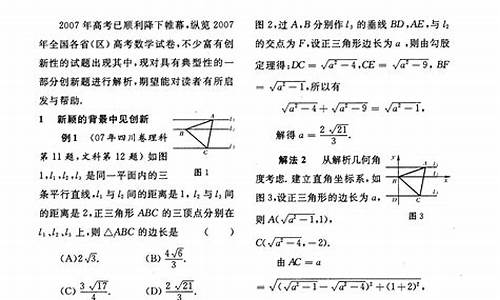 2007 年高考已顺利降下帷幕,纵览 2007
年全国各省(区)高考数学试卷,不少富有创
新性的试题出现其中,现对具有典型性的一
部分创新题进行解析,期望能对读者有所启
发与帮助.
1 新颖的背景中见创新
例 1 (07 年四川卷理科
第 11 题,文科第 12 题) 如图
1,l₁,l₂,l₃ 是同一平面内的三
条平行直线,l₁ 与 l₂ 间的距离是 1,l₂ 与 l₃ 间
的距离是 2,正三角形 ABC 的三顶点分别在
l₁、l₂、l₃ 上,则 △ABC 的边长是 ( )
(A) 2√3. (B) 4√6/3.
(C) 3√17/4. (D) 2√21/3.
A
B
C
l₁
l₂
l₃
图 1
图 2,过 A、B 分别作 l₃ 的垂线 BD,AE,与 l₂
的交点为 F,设正三角形边长为 a,则由勾股
定理得:DC = √(a²−4),CE = √(a²−9),BF
= √(a²−1),所以有
√(a²−4) + √(a²−9) = √(a²−1),
解得 a = 2√21/3.
解法 2 从解析几何角
度考虑. 建立直角坐标系,如
图 3,设正三角形的边长为 a,
则 A(√(a²−1),1),
C(√(a²−4),−2).
由 AC = a
= √((√(a²−1) − √(a²−4))² + (1+2)²),
y
A
B
C
x
图 3